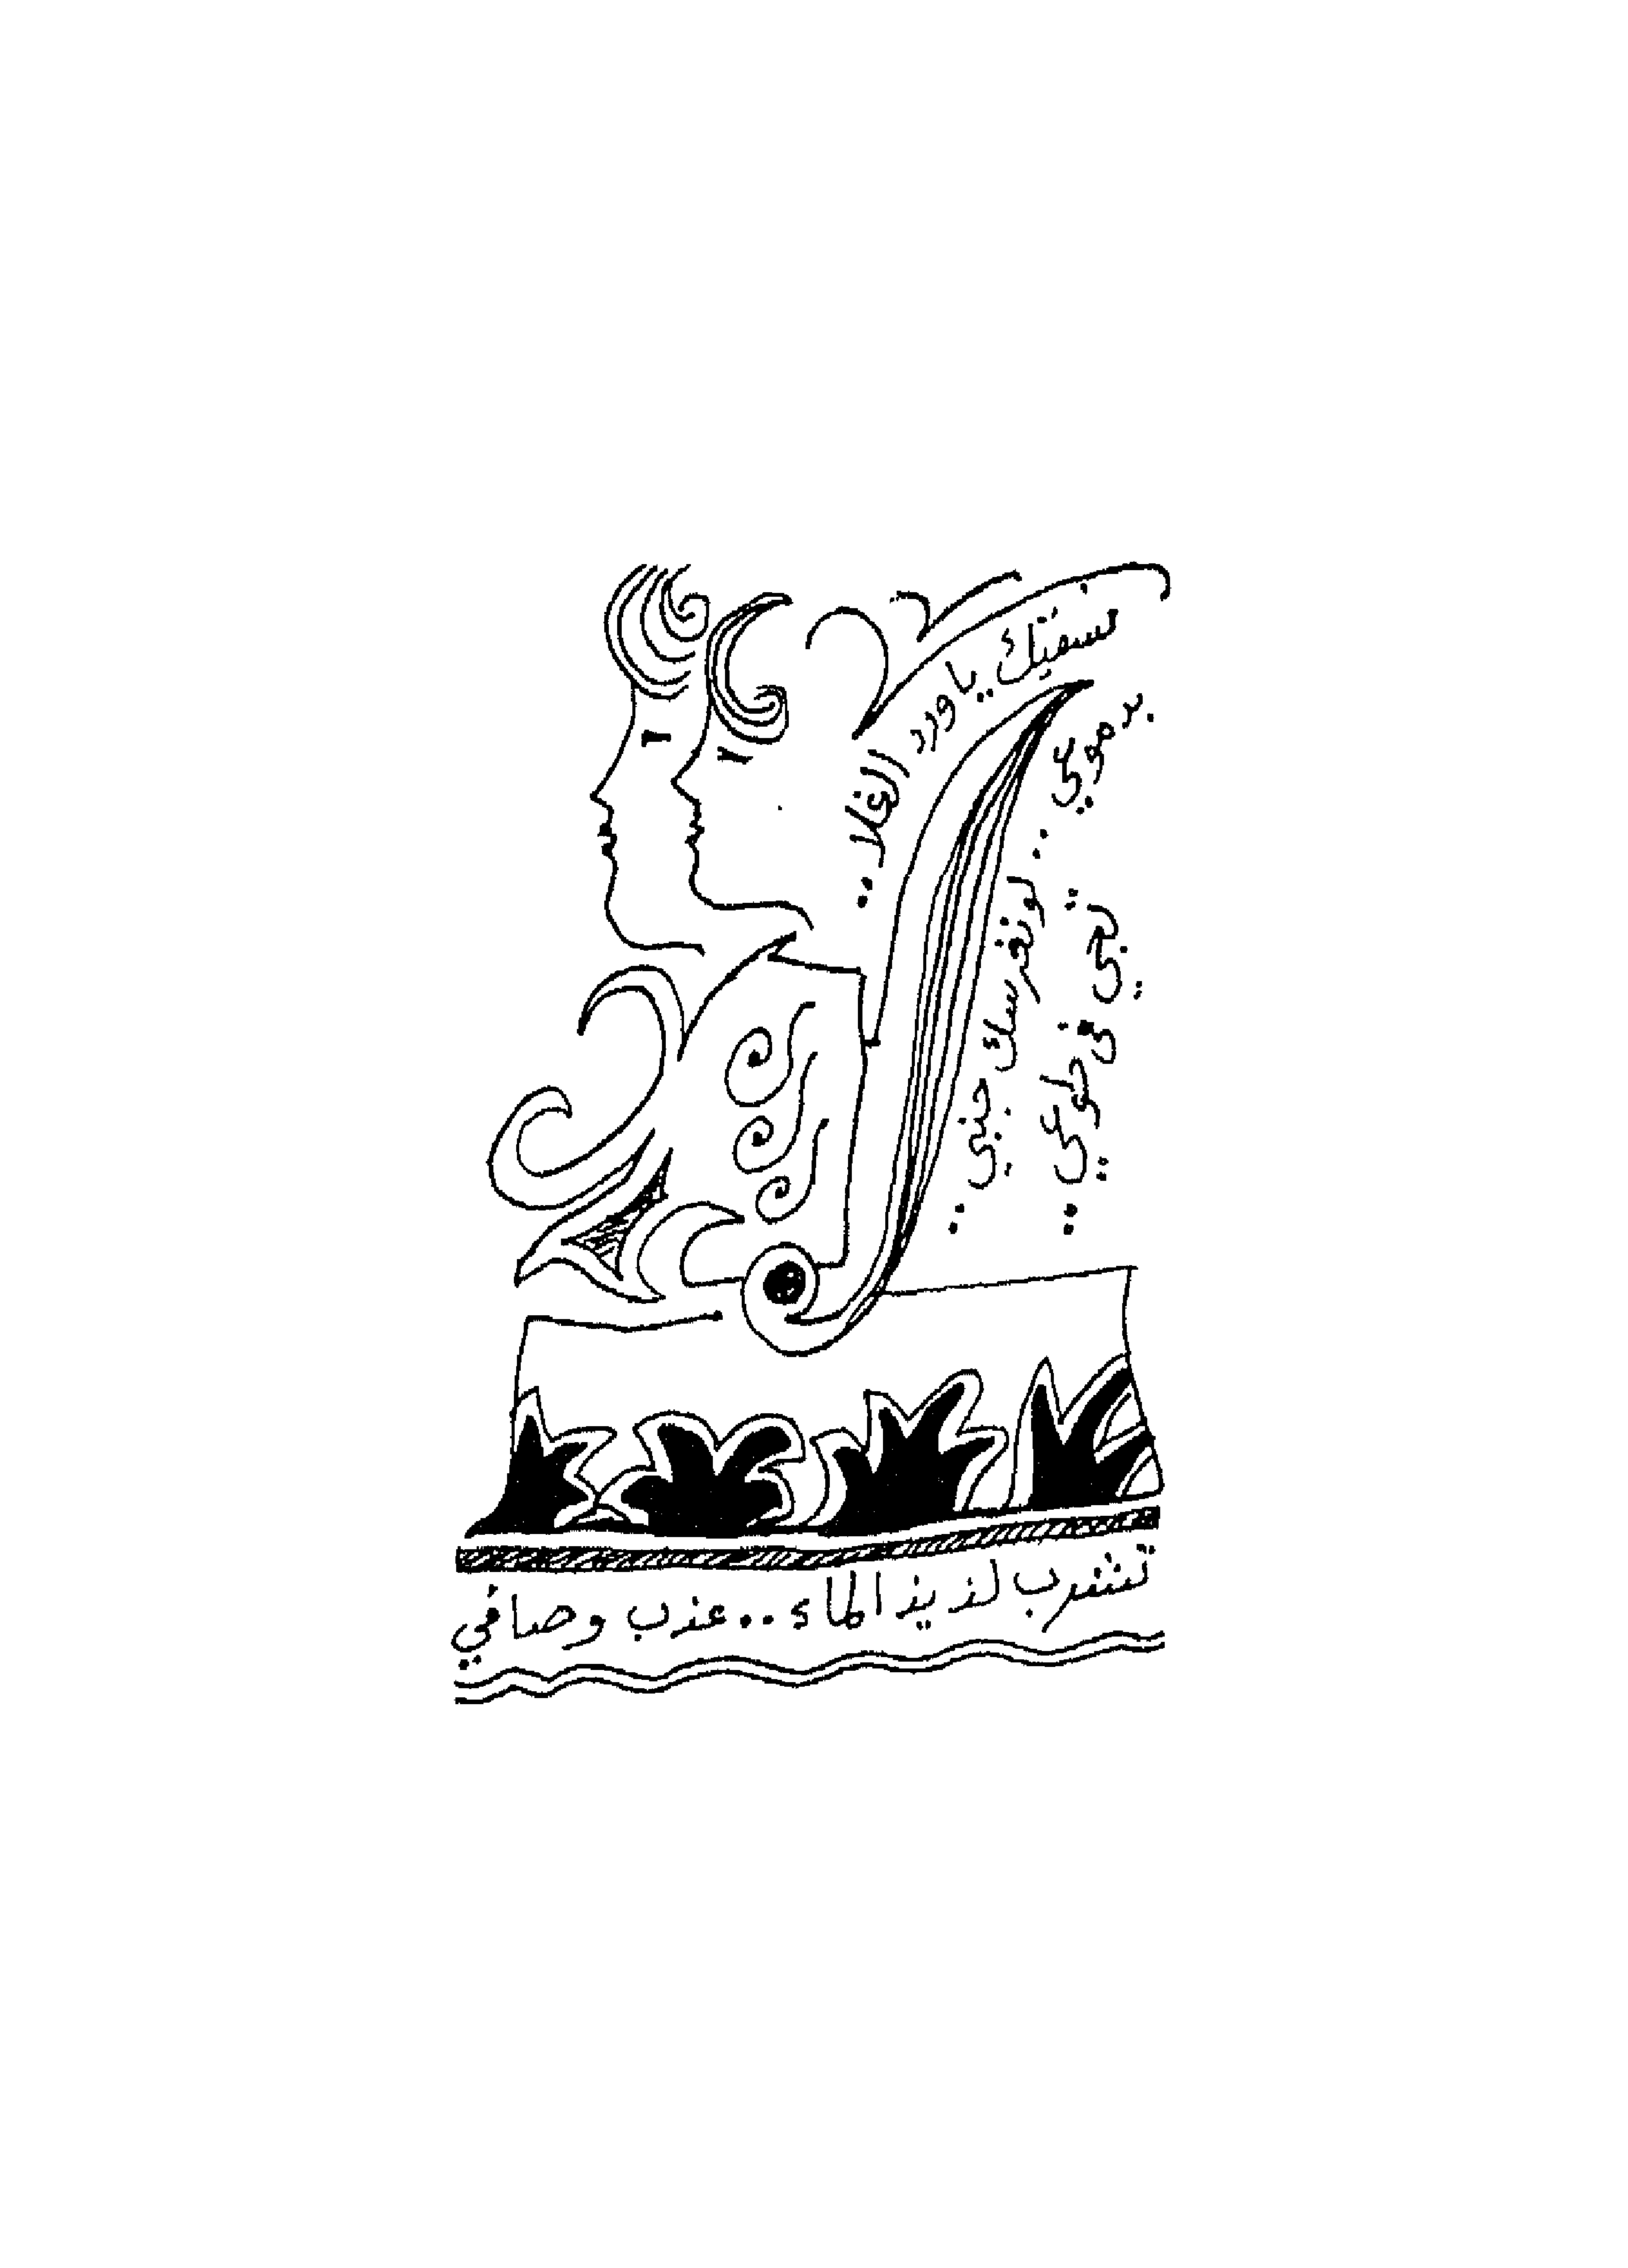 سقيتك يا ورد الغلا ..
بدموعي .. لو تغرسك جنبي ..
تجي في ضلوعي ..
تشرب لذيذ الماء .. عذب وصافي